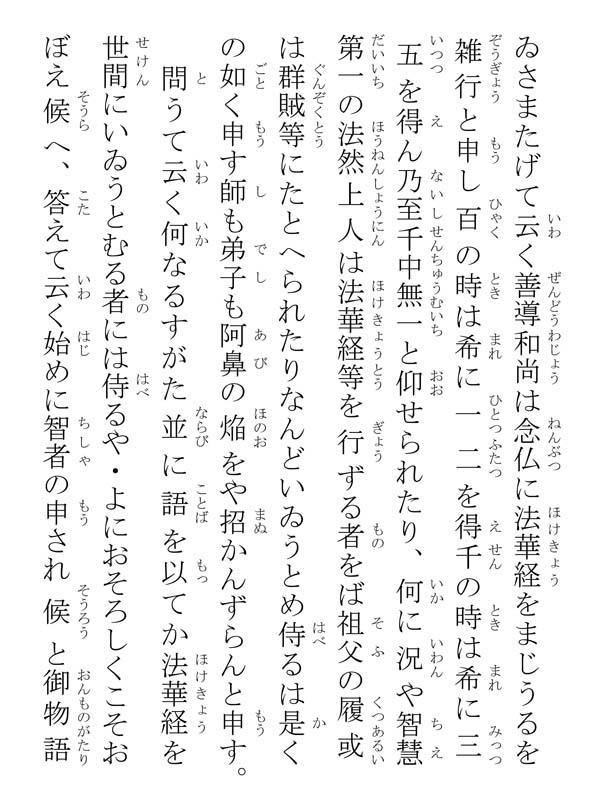 ゐさまたげて云く善導和尚は念仏に法華経をまじうるを
雑行と申し百の時は希に一二を得千の時は希に三
五を得ん乃至千中無一と仰せられたり、何に況や智慧
第一の法然上人は法華経等を行ずる者をば祖父の履或
は群賊等にたとへられたりなんどいゐうとめ侍るは是く
の如く申す師も弟子も阿鼻の焔をや招かんずらんと申す。
問うて云く何なるすがた並に語を以てか法華経を
世間にいゐうとむる者には侍るや・よにおそろしくこそお
ぼえ候へ、答えて云く始めに智者の申され候と御物語